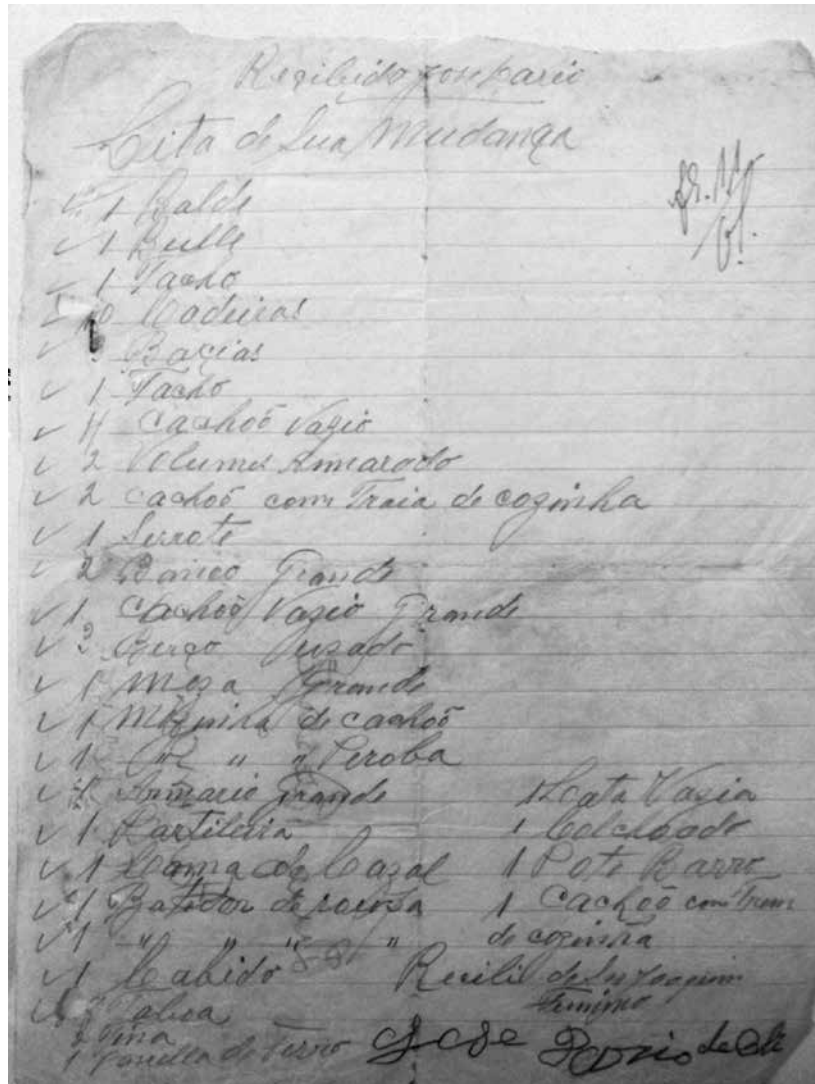 Lita de Sua Mudança
1 Balde
1 Bulle
1 Tacho
Cadeiras
Bacias
1 Tacho
4 Cachoõ Vazio
2 Volumes Amarado
2 cachoõ com Traia de cozinha
1 Serrote
2 Banco Grande
1 Cachoõ Vazio Grande
Berço Uzado
1 Meza Grande
1 Mezinha de cachoõ
1 " " Peroba
1 Armario Grande
1 Partileira
1 Cama de Cazal
1 Batedor de roupa
1 " " " "
1 Cabido
Taboa
2 Tina
1 Panella de Ferro
1 Lata Vazia
1 Colchoado
1 Pote Barro
1 Cachoõ com Trem
de cozinha
Recibi de Snr Joaquim
Firmino
José